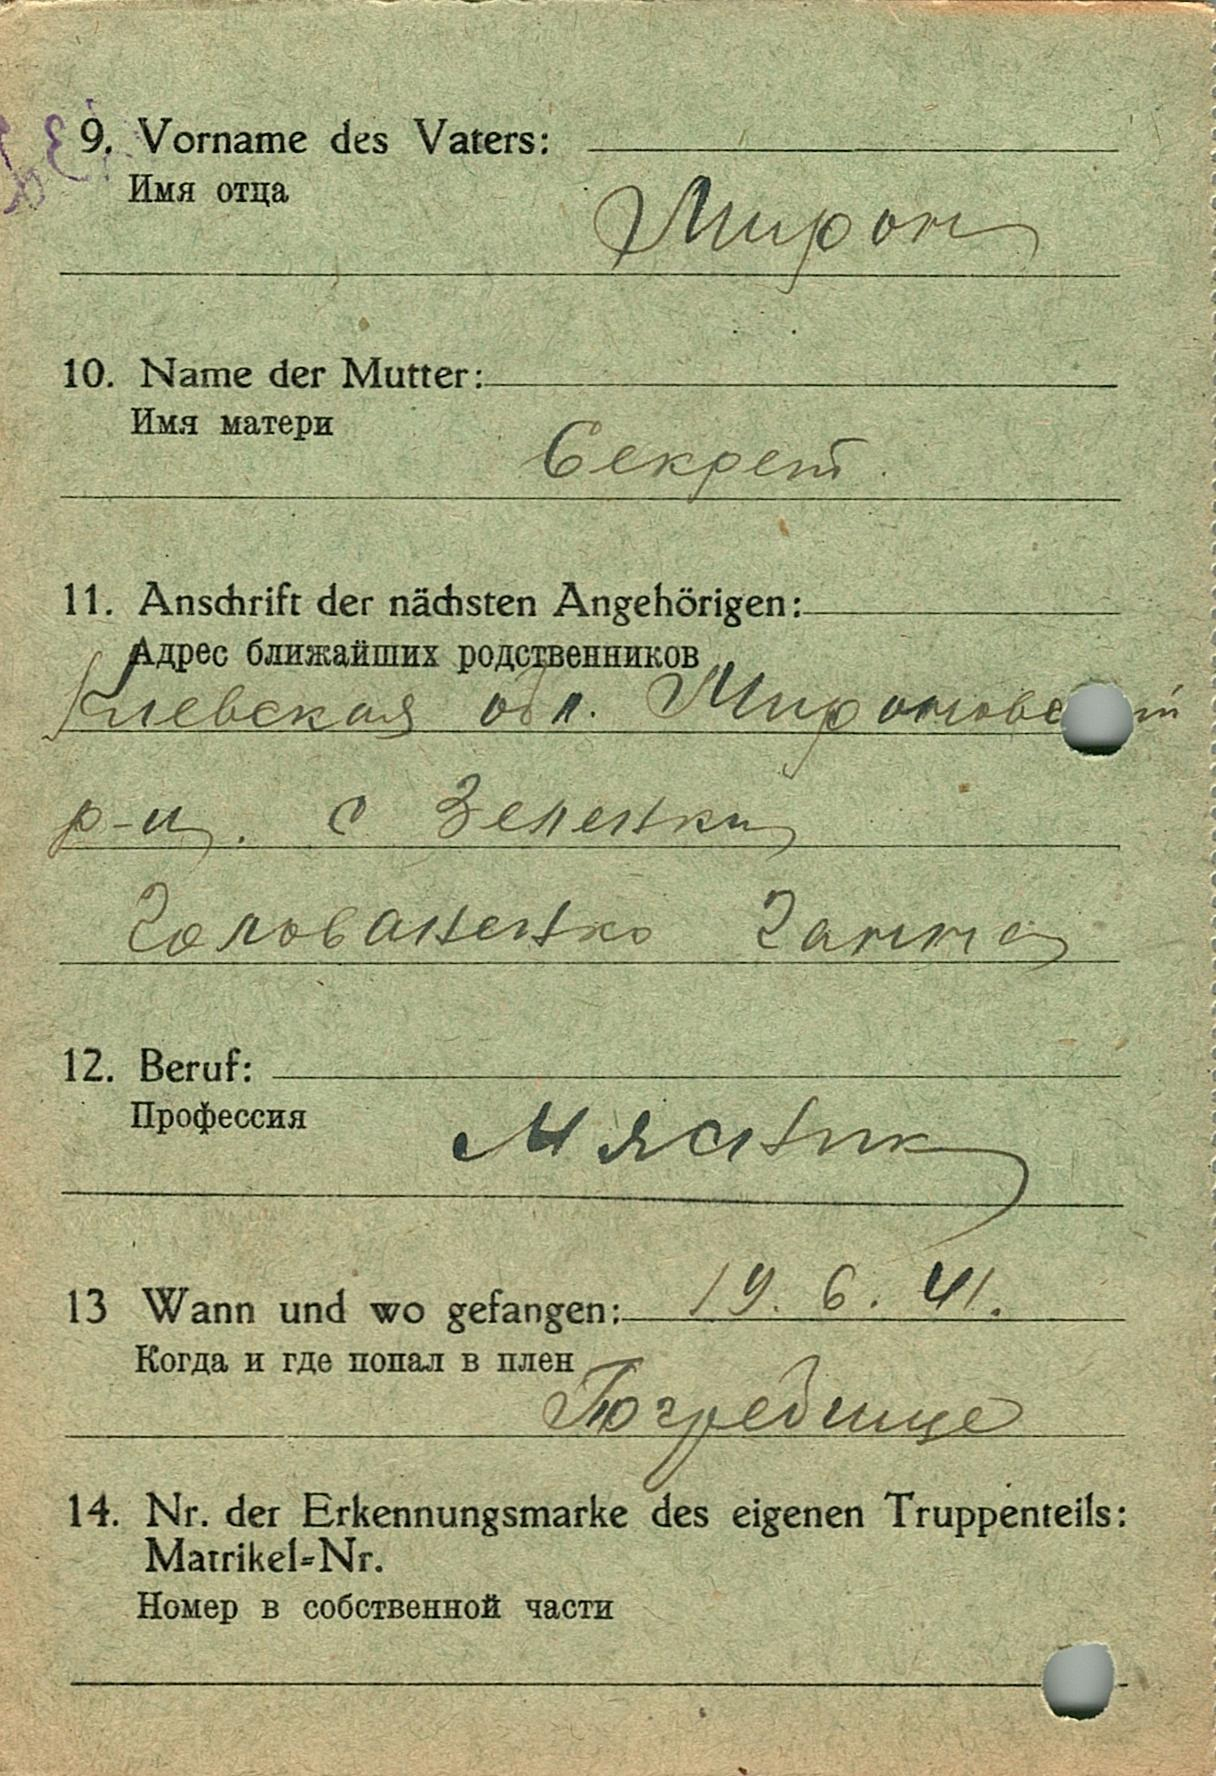 9. Vorname des Vaters:
Имя отца
Мирон
10. Name der Mutter:
Имя матери
Секрет.
11. Anschrift der nächsten Angehörigen:
Адрес ближайших родственников
Киевская обл. Мироновс ий
р-н. с Зеленки
Голованенко Ганна
12. Beruf:
Профессия
Мясник
13 Wann und wo gefangen: 19. 6. 41.
Когда и где попал в плен
Погребище
14. Nr. der Erkennungsmarke des eigenen Truppenteils:
Matrikel-Nr.
Номер в собственной части